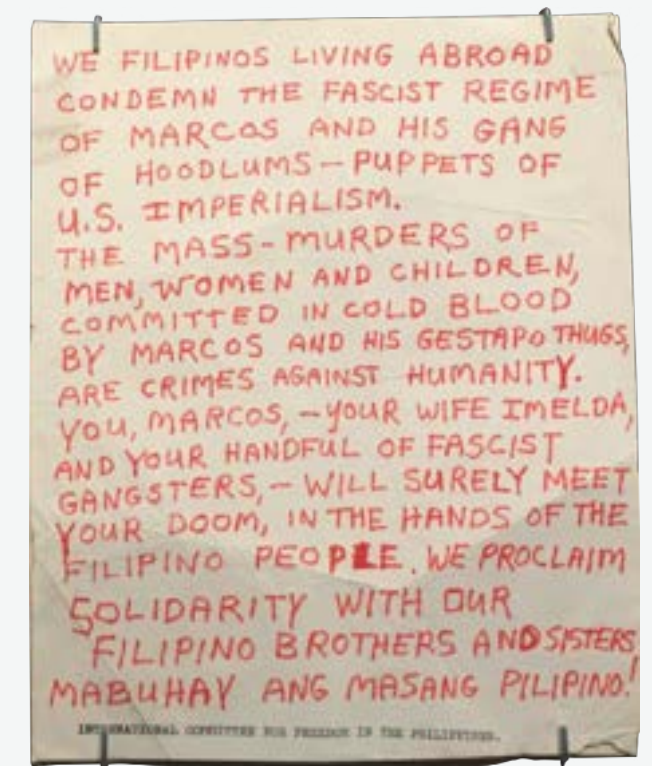 WE FILIPINOS LIVING ABROAD
CONDEMN THE FASCIST REGIME
OF MARCOS AND HIS GANG
OF HOODLUMS – PUPPETS OF
U.S. IMPERIALISM.
THE MASS-MURDERS OF
MEN, WOMEN AND CHILDREN,
COMMITTED IN COLD BLOOD
BY MARCOS AND HIS GESTAPO THUGS,
ARE CRIMES AGAINST HUMANITY.
YOU, MARCOS, – YOUR WIFE IMELDA,
AND YOUR HANDFUL OF FASCIST
GANGSTERS, – WILL SURELY MEET
YOUR DOOM, IN THE HANDS OF THE
FILIPINO PEOPLE. WE PROCLAIM
SOLIDARITY WITH OUR
FILIPINO BROTHERS AND SISTERS
MABUHAY ANG MASANG PILIPINO!
INTERNATIONAL COMMITTEE FOR FREEDOM IN THE PHILIPPINES.